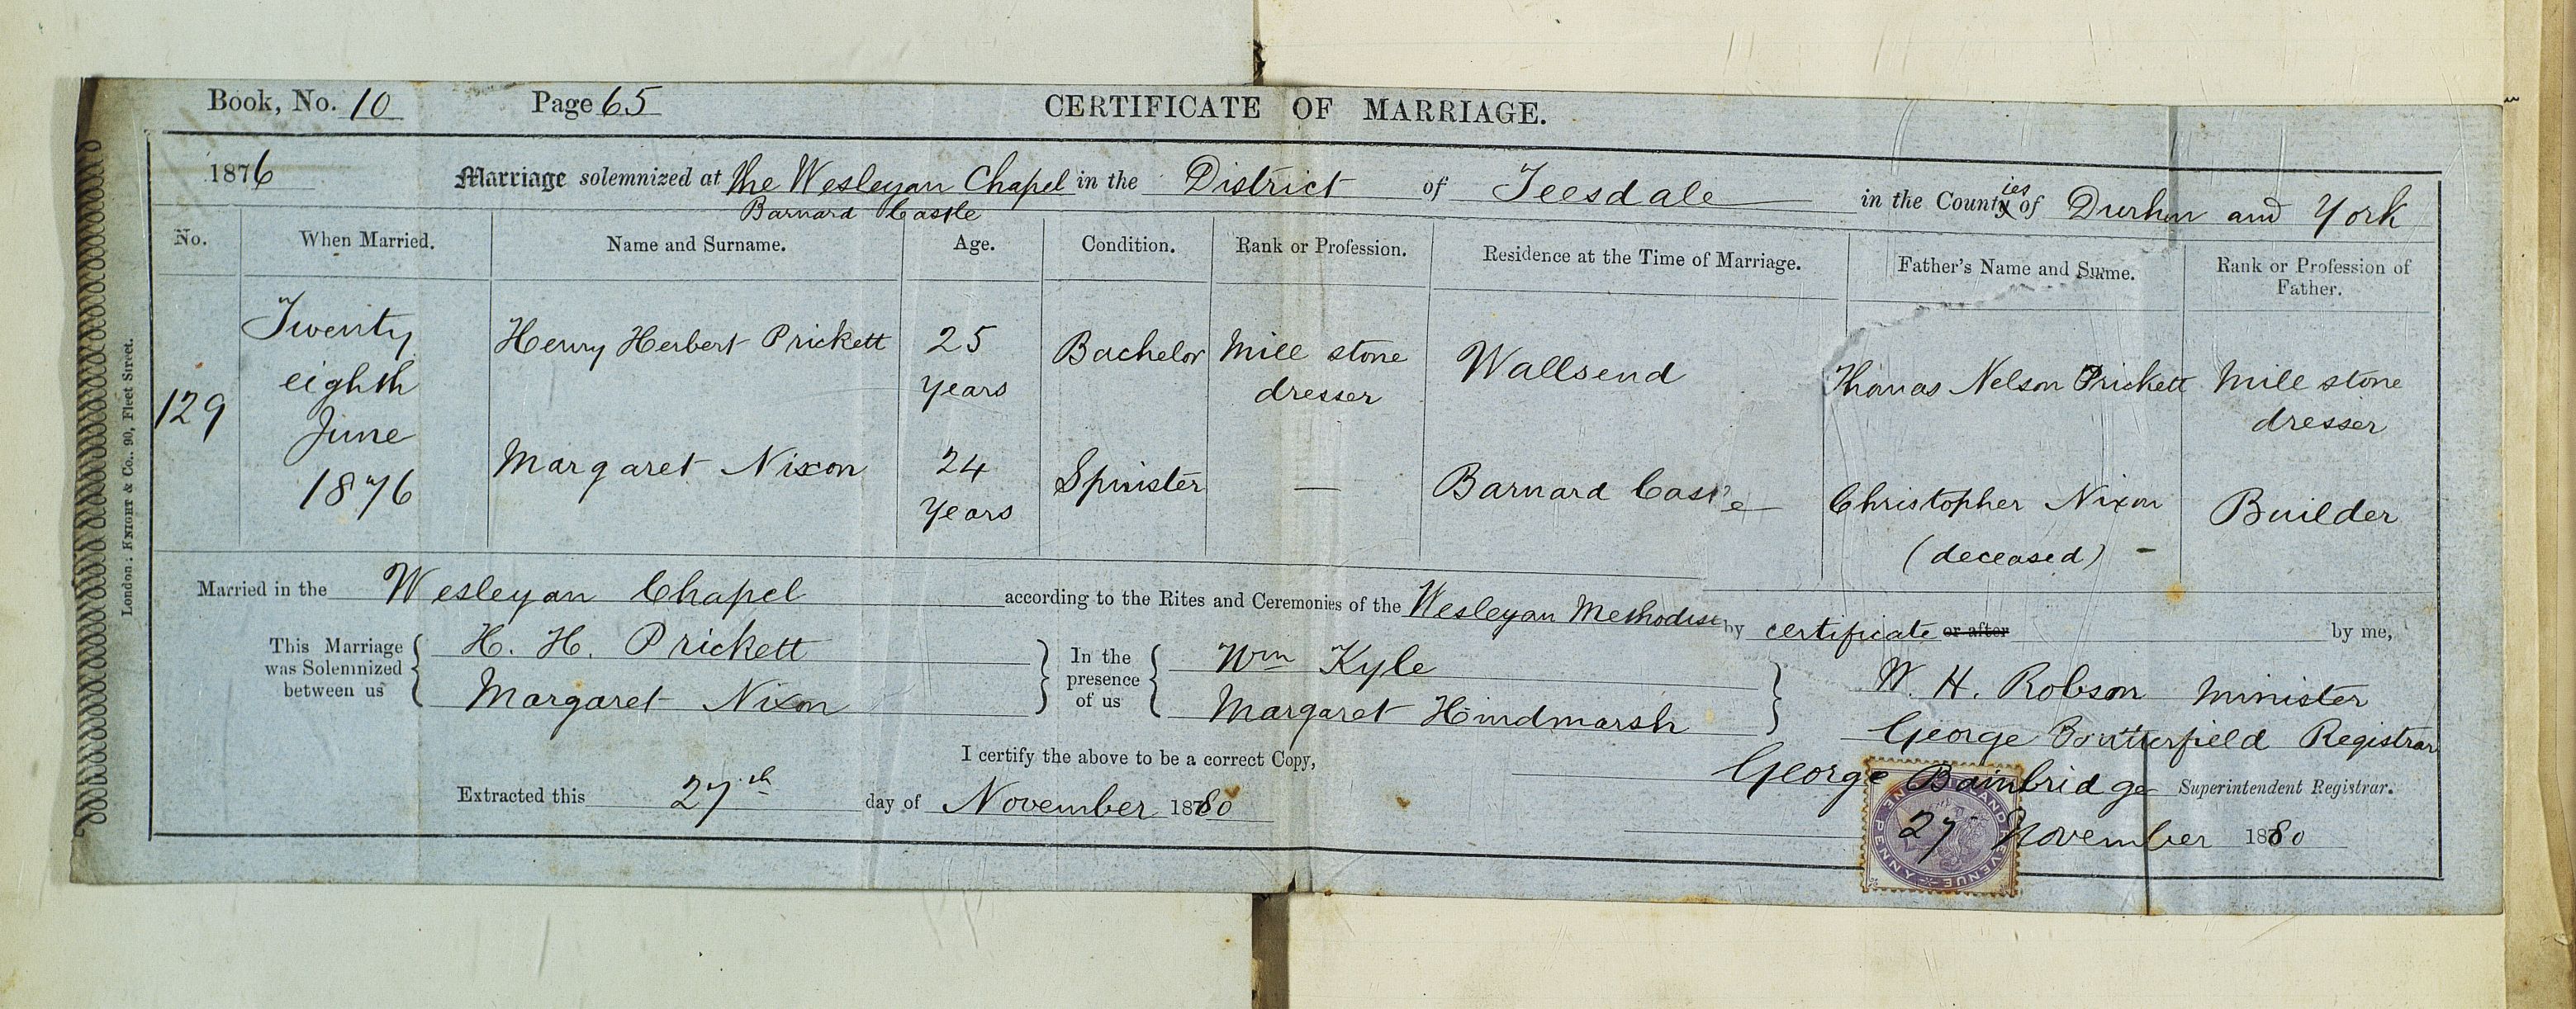 Book, No. 10 Page 65 CERTIFICATE OF MARRIAGE.
1876 Marriage solemnized at the Wesleyan Chapel in the District of Teesdale in the County ies of Durham and York
Barnard Castle
No. When Married. Name and Surname. Age. Condition. Rank or Profession. Residence at the Time of Marriage. Father's Name and Surname. Rank or Profession of Father.
129 Twenty eighth June 1876
Henry Herbert Prickett 25 years Bachelor Mill stone dresser Wallsend Thomas Nelson Prickett Mill stone dresser
Margaret Nixon 24 years Spinster — Barnard Castle Christopher Nixon (deceased) Builder
Married in the Wesleyan Chapel according to the Rites and Ceremonies of the Wesleyan Methodist by certificate or after by me,
This Marriage was Solemnized between us
H. H. Prickett
Margaret Nixon
In the presence of us
Wm Kyle
Margaret Hindmarsh
W. H. Robson Minister
George Butterfield Registrar
I certify the above to be a correct Copy,
George Bainbridge Superintendent Registrar.
Extracted this 27th day of November 1880
27 November 1880
London: KNIGHT & Co., 90, Fleet Street.